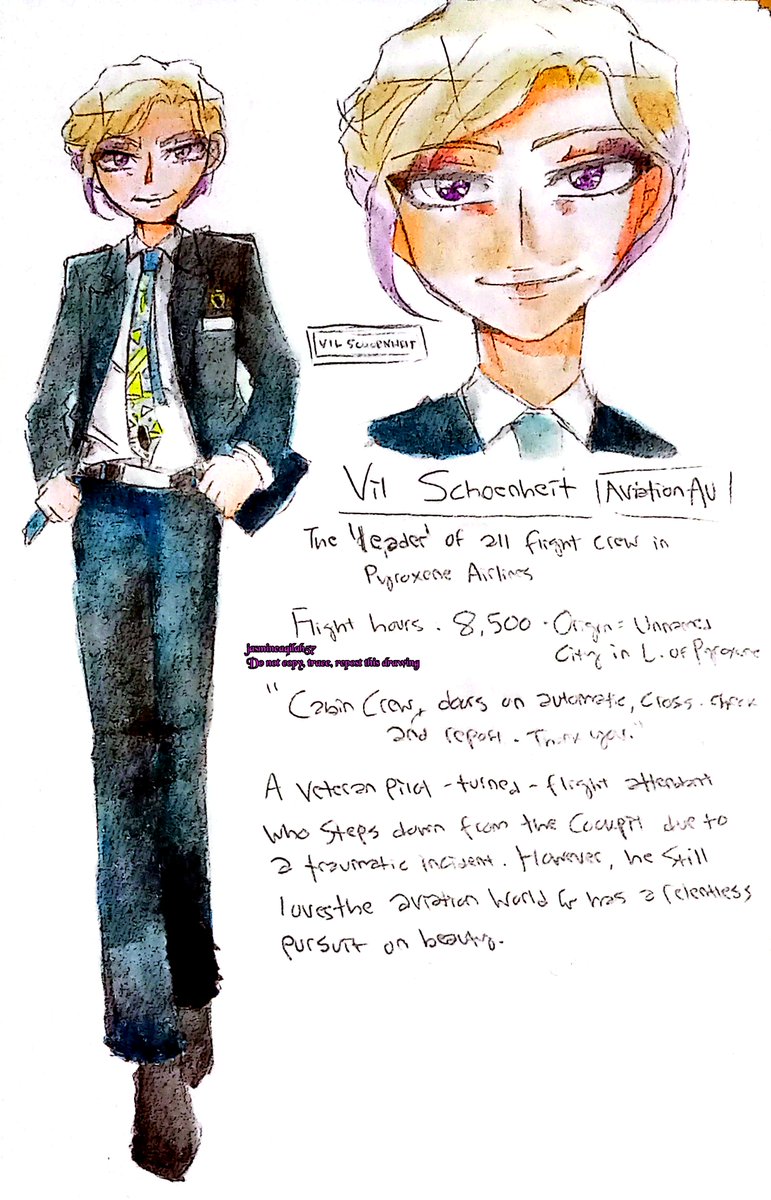 VIL SCHOENHEIT
Vil Schoenheit |Aviation AU|
The 'leader' of all flight crew in
Pyroxene Airlines
Flight hours . 8,500 . Origin = Unnamed
City in L. of Pyroxene
jasmineaqilah57
Do not copy, trace, repost this drawing
"Cabin Crew, doors on automatic, cross-check
and report. Thank you."
A veteran pilot -turned-flight attendant
who steps down from the cockpit due to
a traumatic incident. However, he still
loves the aviation world & has a relentless
pursuit on beauty.